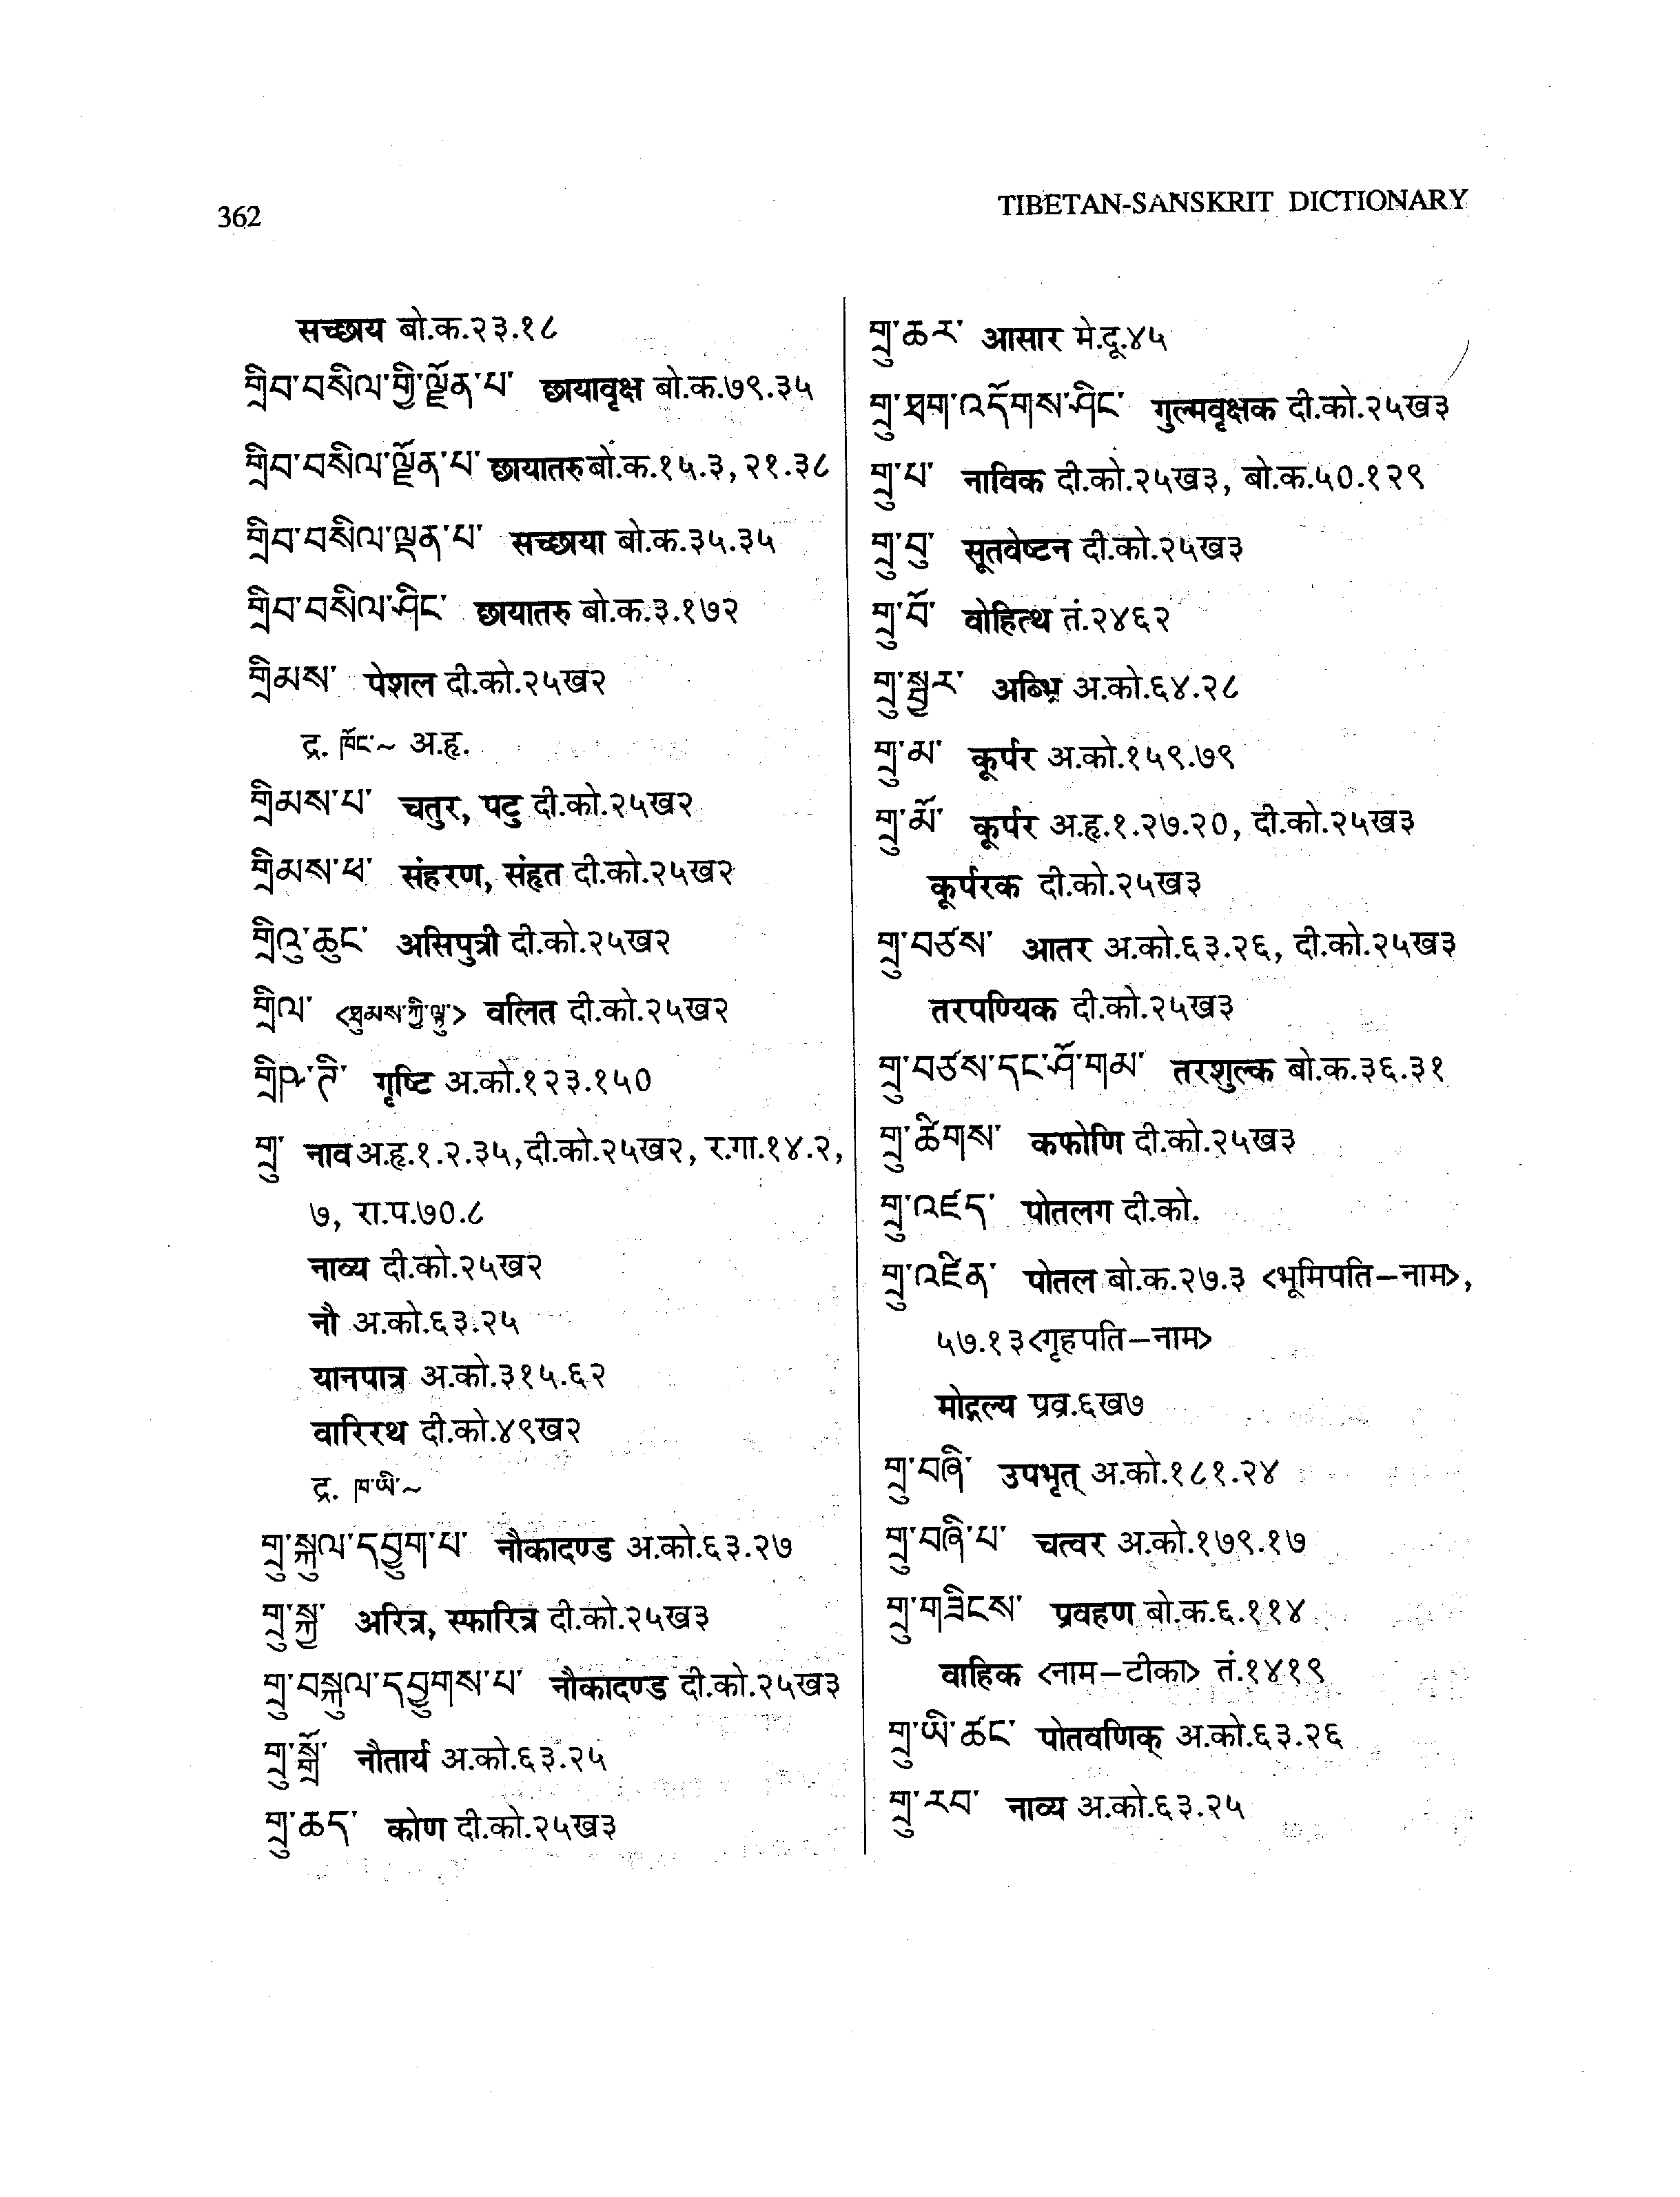 362
TIBETAN-SANSKRIT DICTIONARY
सच्छाय बो.क.२३.१८
གྲིབ་བསིལ་གྱི་ལྗོན་པ་ छायावृक्ष बो.क.७९.३५
གྲིབ་བསིལ་ལྗོན་པ་ छायातरु बो.क.१५.३, २१.३८
གྲིབ་བསིལ་ལྡན་པ་ सच्छाया बो.क.३५.३५
གྲིབ་བསིལ་ཤིང་ छायातरु बो.क.३.१७२
གྲིམས་ पेशल दी.को.२५ख२
द्र. ཁོང་~ अ.हृ.
གྲིམས་པ་ चतुर, पटु दी.को.२५ख२
གྲིམས་ཕ་ संहरण, संहृत दी.को.२५ख२
གྲིའུ་ཆུང་ असिपुत्री दी.को.२५ख२
གྲིལ་ <ཐུམས་ཀྱི་ལྟུ་> वलित दी.को.२५ख२
གྲིཥ་ཊི་ गृष्टि अ.को.१२३.१५०
གྲུ་ नाव अ.हृ.१.२.३५, दी.को.२५ख२, र.गा.१४.२,
७, रा.प.७०.८
नाव्य दी.को.२५ख२
नौ अ.को.६३.२५
यानपात्र अ.को.३१५.६२
वारिरथ दी.को.४९ख२
द्र. ཁ་ཡི་~
གྲུ་སྐུལ་དབྱུག་པ་ नौकादण्ड अ.को.६३.२७
གྲུ་སྐྱ་ अरित्र, स्फारित्र दी.को.२५ख३
གྲུ་བསྐུལ་དབྱུགས་པ་ नौकादण्ड दी.को.२५ख३
གྲུ་སྒྲོ་ नौतार्य अ.को.६३.२५
གྲུ་ཆད་ कोण दी.को.२५ख३
གྲུ་ཆར་ आसार मे.दू.४५
གྲུ་ཐག་འདོགས་ཤིང་ गुल्मवृक्षक दी.को.२५ख३
གྲུ་པ་ नाविक दी.को.२५ख३, बो.क.५०.१२९
གྲུ་བུ་ सूतवेष्टन दी.को.२५ख३
གྲུ་བོ་ वोहित्थ तं.२४६२
གྲུ་སྦྱར་ अब्भ्रि अ.को.६४.२८
གྲུ་མ་ कूर्पर अ.को.१५९.७९
གྲུ་མོ་ कूर्पर अ.हृ.१.२७.२०, दी.को.२५ख३
कूर्परक दी.को.२५ख३
གྲུ་བཙས་ आतर अ.को.६३.२६, दी.को.२५ख३
तरपण्यिक दी.को.२५ख३
གྲུ་བཙས་དང་ཤོ་གམ་ तरशुल्क बो.क.३६.३१
གྲུ་ཚིགས་ कफोणि दी.को.२५ख३
གྲུ་འཛད་ पोतलग दी.को.
གྲུ་འཛིན་ पोतल बो.क.२७.३ <भूमिपति–नाम>,
५७.१३<गृहपति–नाम>
मोद्गल्य प्रव्र.६ख७
གྲུ་བཞི་ उपभृत् अ.को.१८१.२४
གྲུ་བཞི་པ་ चत्वर अ.को.१७९.१७
གྲུ་གཟིངས་ प्रवहण बो.क.६.११४
वाहिक <नाम–टीका> तं.१४१९
གྲུ་ཡི་ཚང་ पोतवणिक् अ.को.६३.२६
གྲུ་རབ་ नाव्य अ.को.६३.२५